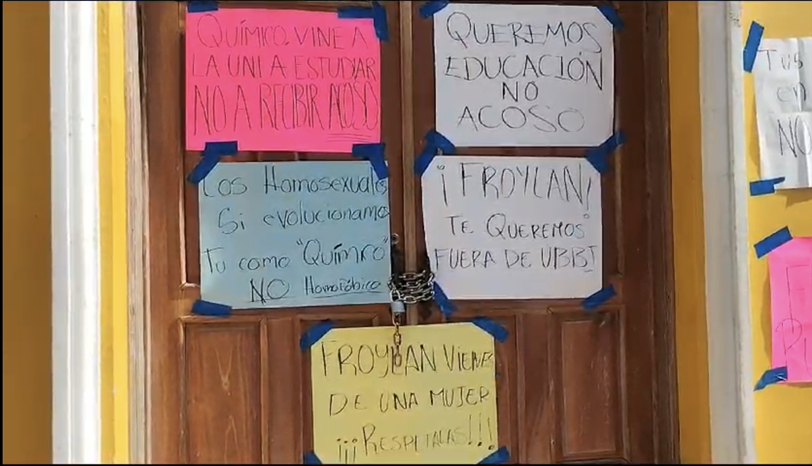 QUÍMICO. VINE A
LA UNI A ESTUDIAR
NO A RECIBIR ACOSO
QUEREMOS
EDUCACIÓN
NO
ACOSO
Los Homosexuales
Si evolucionamos
Tu como "Químico"
NO Homofóbico
¡FROYLAN!
TE QUEREMOS
FUERA DE UBBJ
FROYLAN VIENES
DE UNA MUJER
¡¡¡RESPETALAS!!!
Tus
en
NO